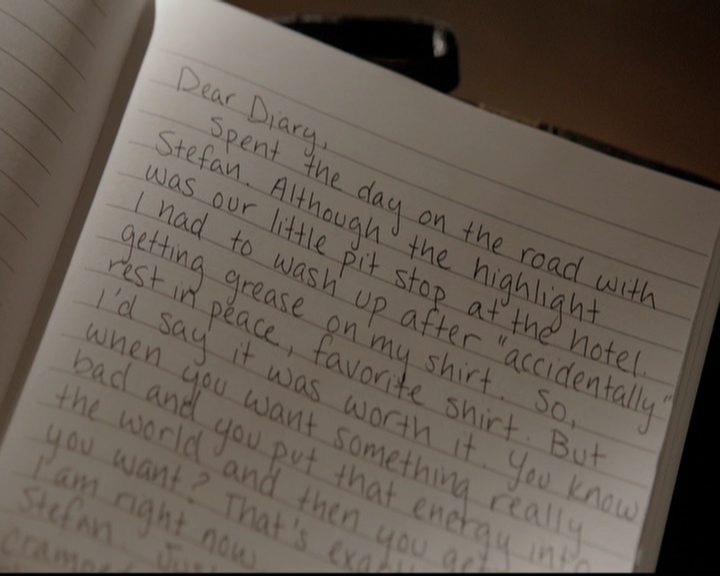 Dear Diary,
Spent the day on the road with
Stefan. Although the highlight
was our little pit stop at the hotel.
I had to wash up after "accidentally"
getting grease on my shirt. So,
rest in peace, favorite shirt. But
I'd say it was worth it. You know
when you want something really
bad and you put that energy into
the world and then you get
you want? That's exa
I am right now
Stefan. Jus
cramped